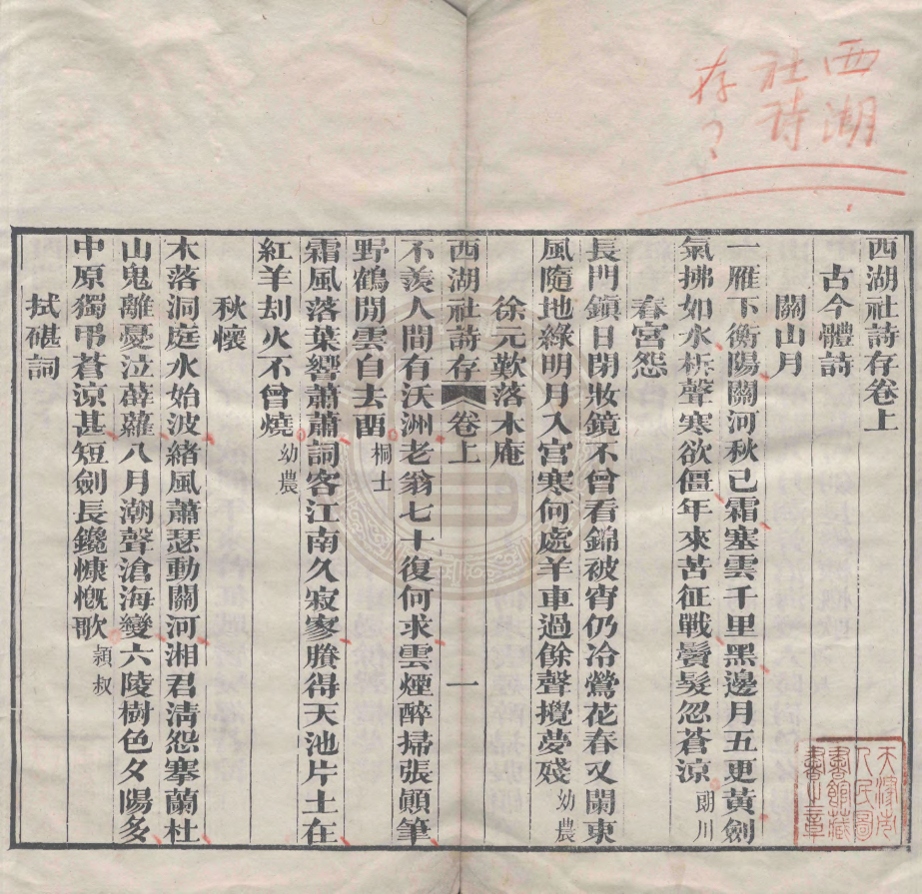 西湖
社詩
存？
西湖社詩存卷上
古今體詩
關山月
一雁下衡陽關河秋已霜塞雲千里黑邊月五更黃劍
氣拂如水柝聲寒欲僵年來苦征戰鬢髮忽蒼涼朗川
春宮怨
長門鎖日閉妝鏡不曾看錦被宵仍冷鶯花春又闌東
風隨地綠明月入宮寒何處羊車過餘聲攪夢殘幼農
徐元歎落木庵
西湖社詩存 卷上 一
不羨人間有沃洲老翁七十復何求雲煙醉掃張顚筆
野鶴閒雲自去畱桐士
霜風落葉響蕭蕭詞客江南久寂寥賸得天池片土在
紅羊刦火不曾燒幼農
秋懷
木落洞庭水始波緒風蕭瑟動關河湘君清怨搴蘭杜
山鬼離憂泣薜蘿八月潮聲滄海變六陵樹色夕陽多
中原獨弔蒼涼甚短劍長鑱慷慨歌穎叔
拭碪詞
天津市
人民圖
書館藏
書之章